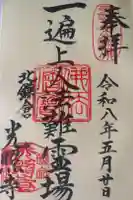 奉拝
令和八年五月廿日
一遍上人法難霊場
北鎌倉
光照寺